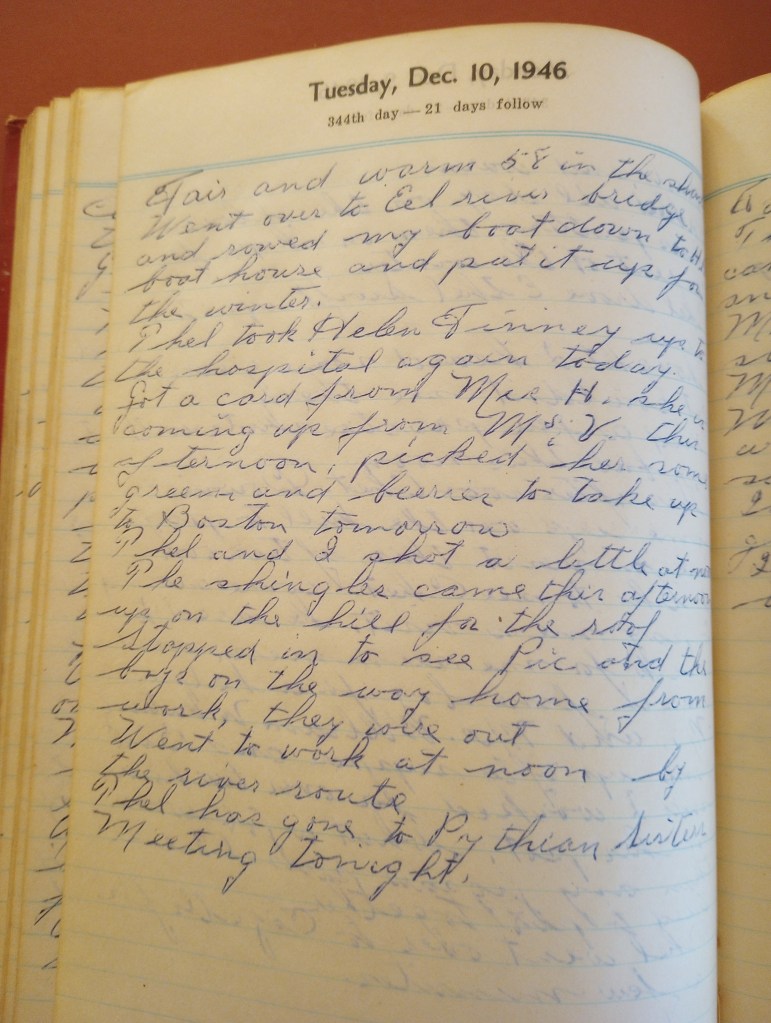 Tuesday, Dec. 10, 1946
344th day — 21 days follow
Fair and warm 58 in the
Went over to Eel river bridge
and rowed my boat down to
boat house and put it up for
the winter.
Phel took Helen Finney up to
the hospital again today.
Got a card from Mrs H. she is
coming up from M's V. this
afternoon, picked her som
greens and beeries to take up
to Boston tomorrow
Phel and I shot a little at
The shingles came this afternoon
up on the hill for the roof
Stopped in to see Pic and the
boys on the way home from
work, they wire out
Went to work at noon by
the river route
Phel has gone to Pythian Sisters
Meeting tonight.